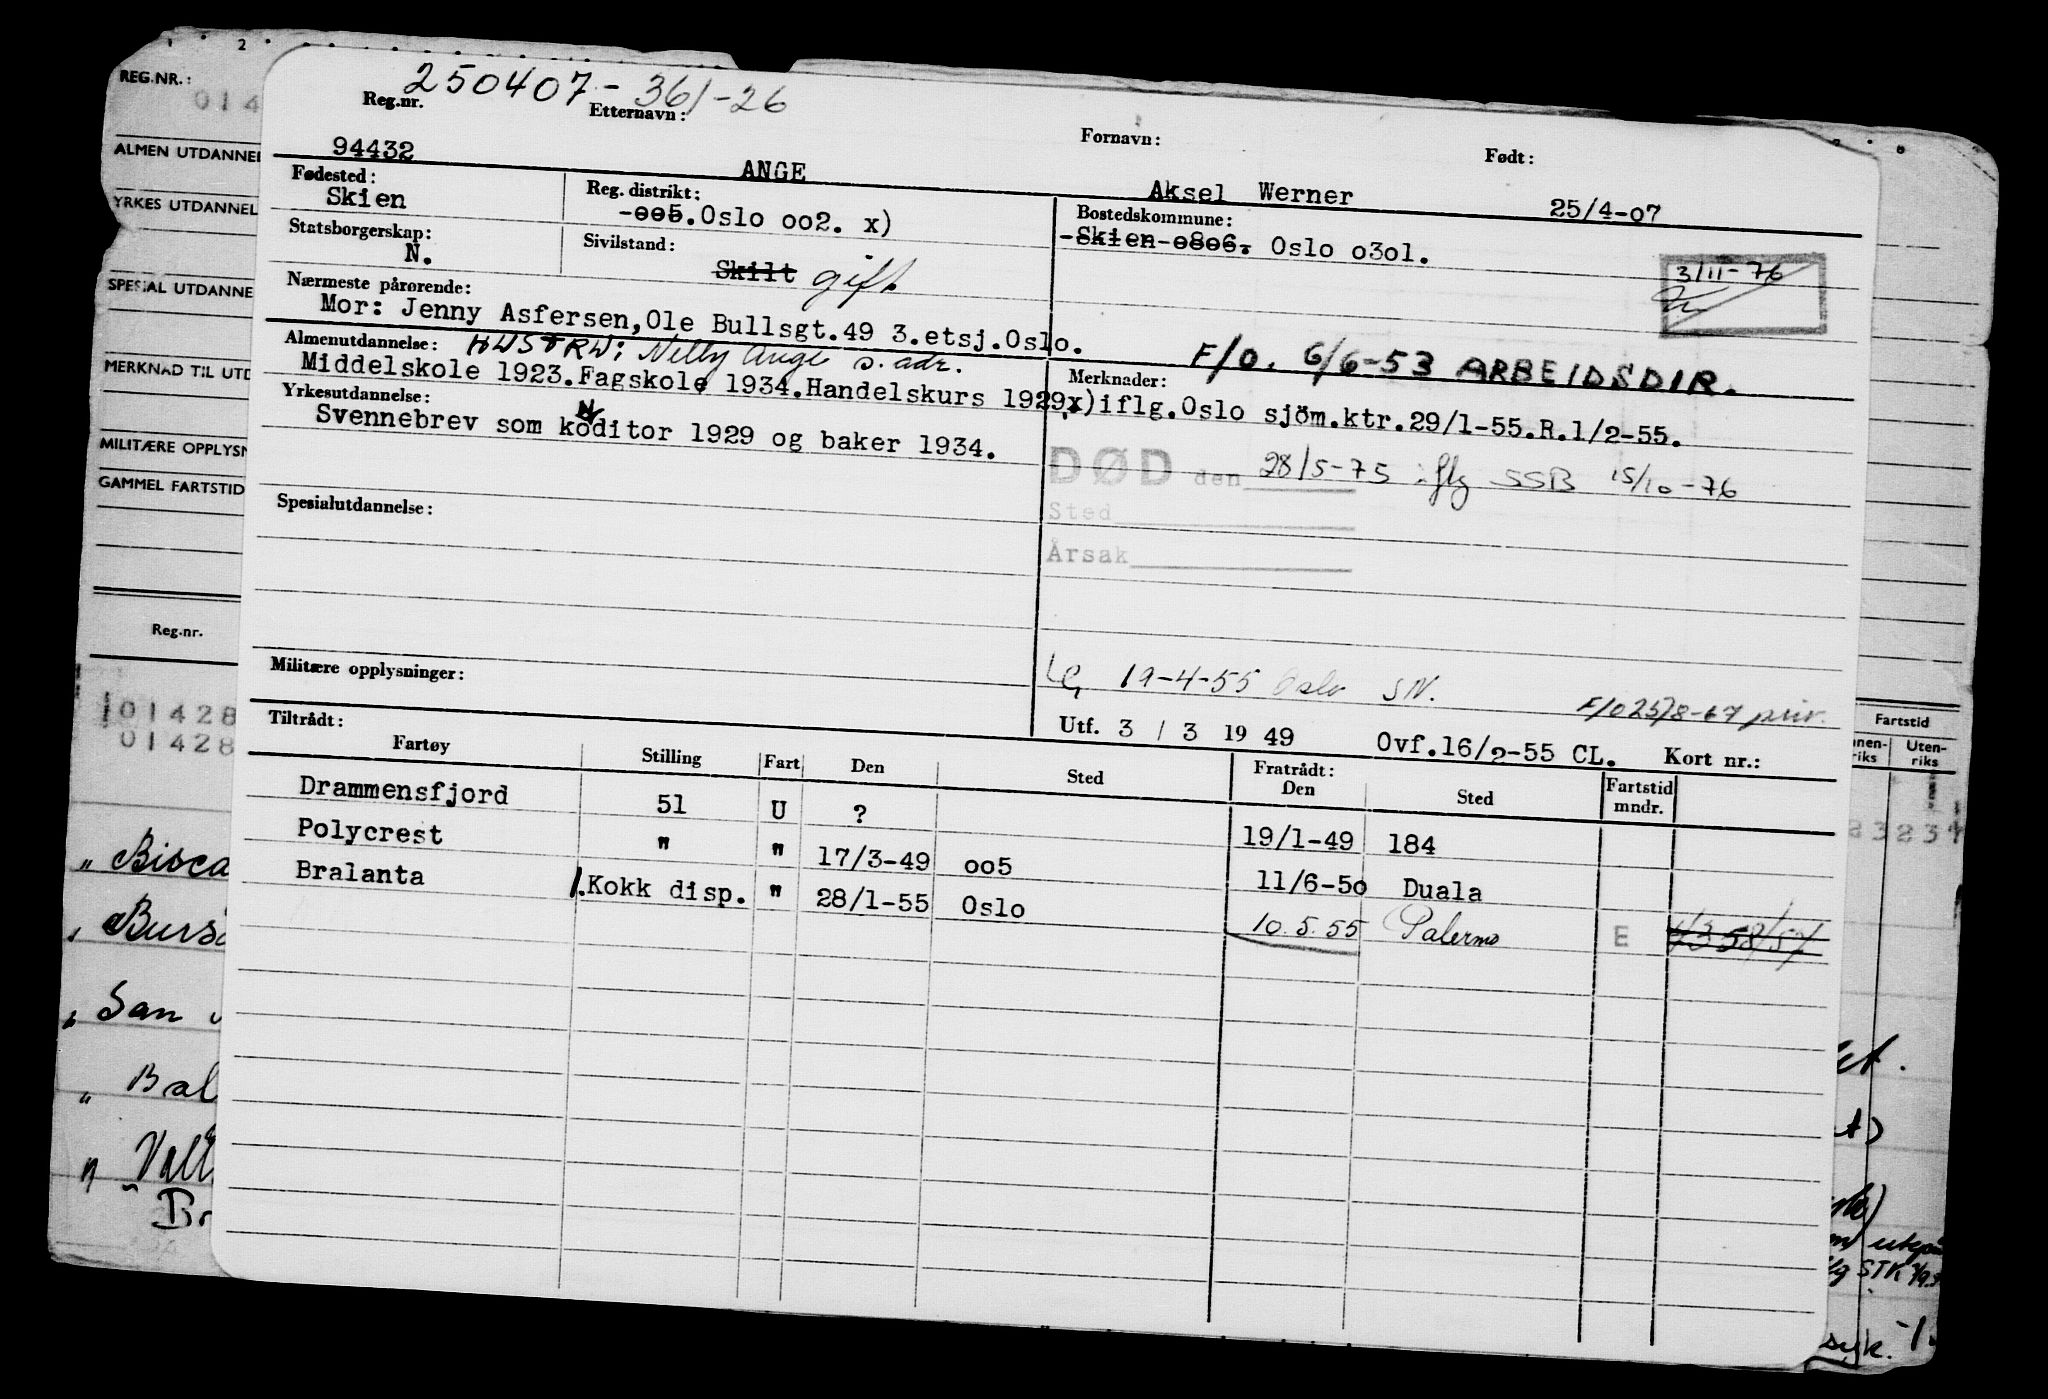 250407-361-26
Reg.nr. Etternavn: Fornavn: Født:
94432 ANGE Aksel Werner 25/4-07
Fødested: Reg. distrikt: Bostedskommune:
Skien -005.Oslo oo2. x) -Skien-0806. Oslo o3o1.
Statsborgerskap: Sivilstand:
N. Skilt gift 3/11-76
Nærmeste pårørende:
Mor: Jenny Asfersen,Ole Bullsgt.49 3.etsj.Oslo.
HUSTRU: Nelly Ange s. adr. F/O. 6/6-53 ARBEIDSDIR.
Almenutdannelse: Merknader:
Middelskole 1923.Fagskole 1934.Handelskurs 1929. x)iflg.Oslo sjöm.ktr.29/1-55.R.1/2-55.
Yrkesutdannelse:
Svennebrev som koditor 1929 og baker 1934.
DØD den 28/5-75 iflg SSB 15/10-76
Spesialutdannelse: Sted
Årsak
Militære opplysninger: 19-4-55 Oslo SN.
F/O 25/8-67 priv.
Tiltrådt: Utf. 3 / 3 19 49 Ovf.16/2-55 CL. Kort nr.:
Fartøy Stilling Fart Den Sted Fratrådt: Den Sted Fartstid mndr.
Drammensfjord 51 U ? 19/1-49 184
Polycrest " " 17/3-49 oo5 11/6-5o Duala
Bralanta 1.Kokk disp. " 28/1-55 Oslo 10.5.55 Palermo E
REG.NR.:
014
ALMEN UTDANNEL
YRKES UTDANNEL
SPESIAL UTDANNE
MERKNAD TIL UTD
MILITÆRE OPPLYSN
GAMMEL FARTSTID
Reg.nr.
01428
01428
" Bisca
San
" Bal
Fartstid
Uten-
riks
syk.